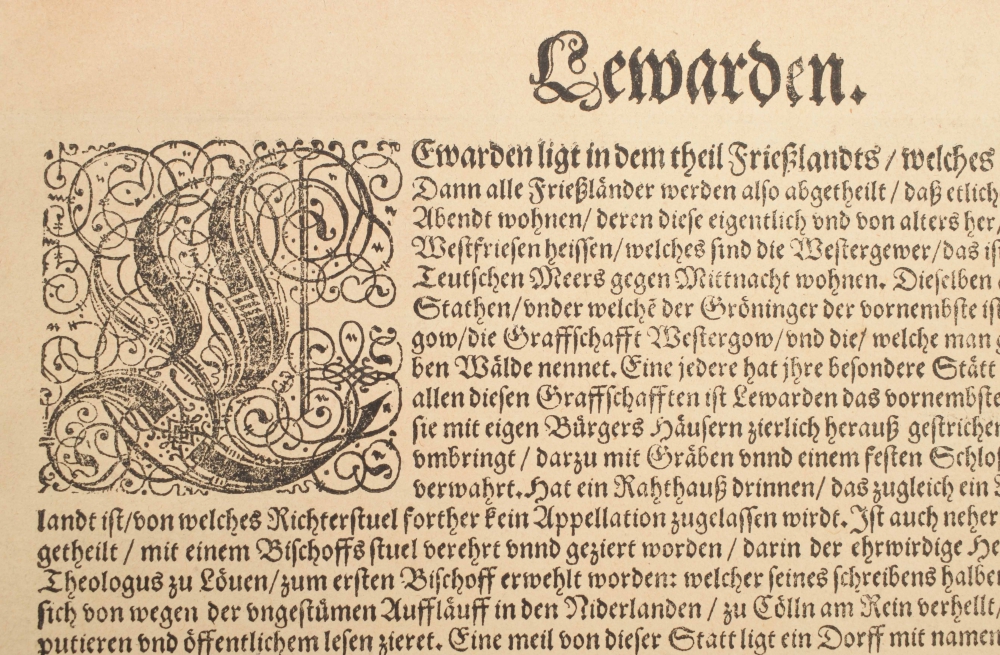 Lewarden.
LEwarden ligt in dem theil Frießlandts / welches
Dann alle Frießländer werden also abgetheilt / daß etlich
Abendt wohnen / deren diese eigentlich vnd von alters her /
Westfriesen heissen / welches sind die Westergewer / das ist
Teutschen Meers gegen Mittnacht wohnen. Dieselben
Stathen / vnder welchē der Gröninger der vornembste ist
gow / die Graffschafft Westergow / vnd die / welche man
ben Wälde nennet. Eine jedere hat jhre besondere Stätt
allen diesen Graffschafften ist Lewarden das vornembste
sie mit eigen Bürgers Häusern zierlich herauß gestrichen
vmbringt / darzu mit Gräben vnnd einem festen Schloß
verwahrt. Hat ein Rahthauß drinnen / das zugleich ein
landt ist / von welches Richterstuel forther kein Appellation zugelassen wirdt. Ist auch neher
getheilt / mit einem Bischoffs stuel verehrt vnnd geziert worden / darin der ehrwirdige He
Theologus zu Löuen / zum ersten Bischoff erwehlt worden: welcher seines schreibens halben
sich von wegen der vngestümen Auffläuff in den Niderlanden / zu Cölln am Rein verhellt /
putieren vnd öffentlichem lesen zieret. Eine meil von dieser Statt ligt ein Dorff mit namen